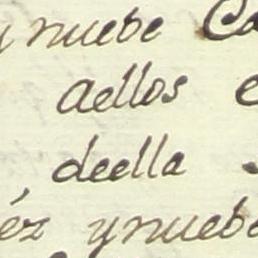 y nuebe Ca
aellos e
deella
éz ynuebe